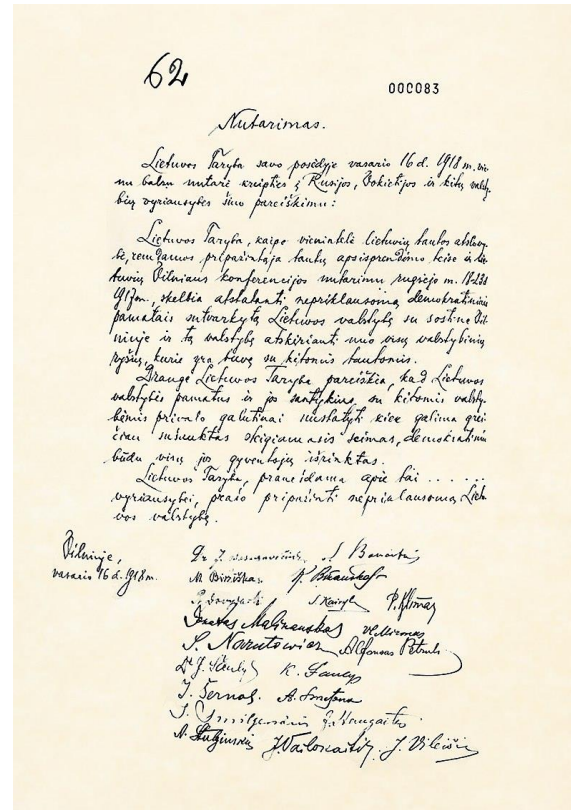 62
000083
Nutarimas.
Lietuvos Taryba savo posėdyje vasario 16 d. 1918 m. vie-
nu balsu nutarė kreipties į Rusijos, Vokietijos ir kitų valsty-
bių vyriausybes šiuo pareiškimu:
Lietuvos Taryba, kaipo vienintelė lietuvių tautos atstovy-
bė, remdamos pripažintąja tautų apsisprendimo teise ir lie-
tuvių Vilniaus konferencijos nutarimu rugsėjo m. 18-23 d.
1917 m., skelbia atstatanti nepriklausomą demokratiniais
pamatais sutvarkytą Lietuvos valstybę su sostine Vil-
niuje ir tą valstybę atskirianti nuo visų valstybinių
ryšių, kurie yra buvę su kitomis tautomis.
Drauge Lietuvos Taryba pareiškia, kad Lietuvos
valstybės pamatus ir jos santykius su kitomis valsty-
bėmis privalo galutinai nustatyti kiek galima grei-
čiau sušauktas steigiamasis seimas, demokratiniu
būdu visų jos gyventojų išrinktas.
Lietuvos Taryba, pranešdama apie tai ......
vyriausybei, prašo pripažinti nepriklausomą Lietu-
vos valstybę.
Vilniuje,
vasario 16 d. 1918 m.
Dr. J. J. Banaitis
M. Biržiška K. Bizauskas
S. Kairys P. Klimas
Donatas Malinauskas Vl. Mironas
S. Narutowicz Alfonsas Petrulis
Dr J. Šaulys K. Šaulys
J. Šernas A. Smetona
J. Smilgevičius J. Staugaitis
A. Stulginskis J. Vailokaitis J. Vileišis